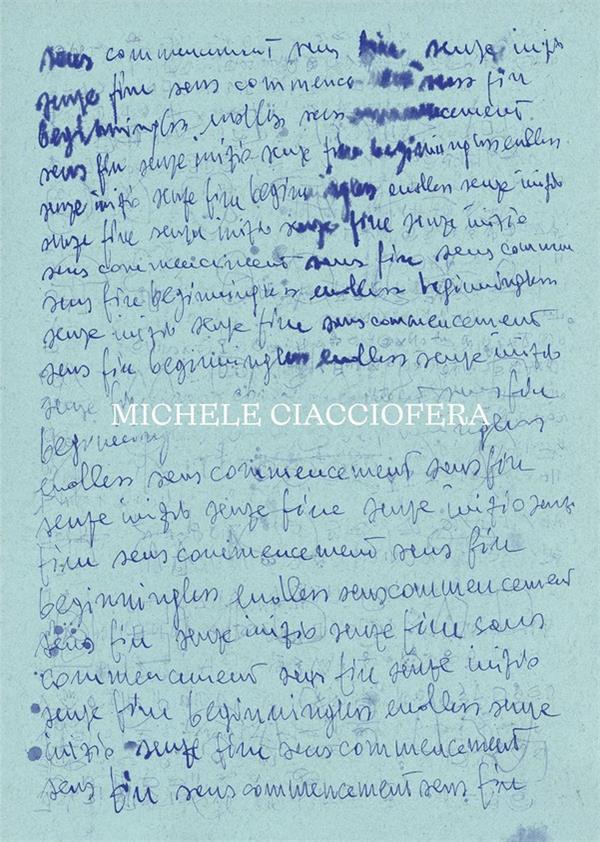 sens commencement sens fine senza inizio
senza fine sens commence sens fin
beginningless endless sens cement
sens fin senza inizio senza fine beginningless endless
senza inizio senza fine beginningless endless senza inizio
senza fine senza inizio senza fine senza inizio
sens commencement sens fin sens commen
sens fin beginningless endless beginningless
senza inizio senza fine sens commencement
sens fin beginningless endless senza inizio
senza fine sens fin
MICHELE CIACCIOFERA
beginning ngless
endless sens commencement sens fin
senza inizio senza fine senza inizio senza
fine sens commencement sens fin
beginningless endless sens commencement
sens fin senza inizio senza fine sans
commencement sens fin senza inizio
senza fine beginningless endless senza
inizio senza fine sens commencement
sens fin sens commencement sens fin